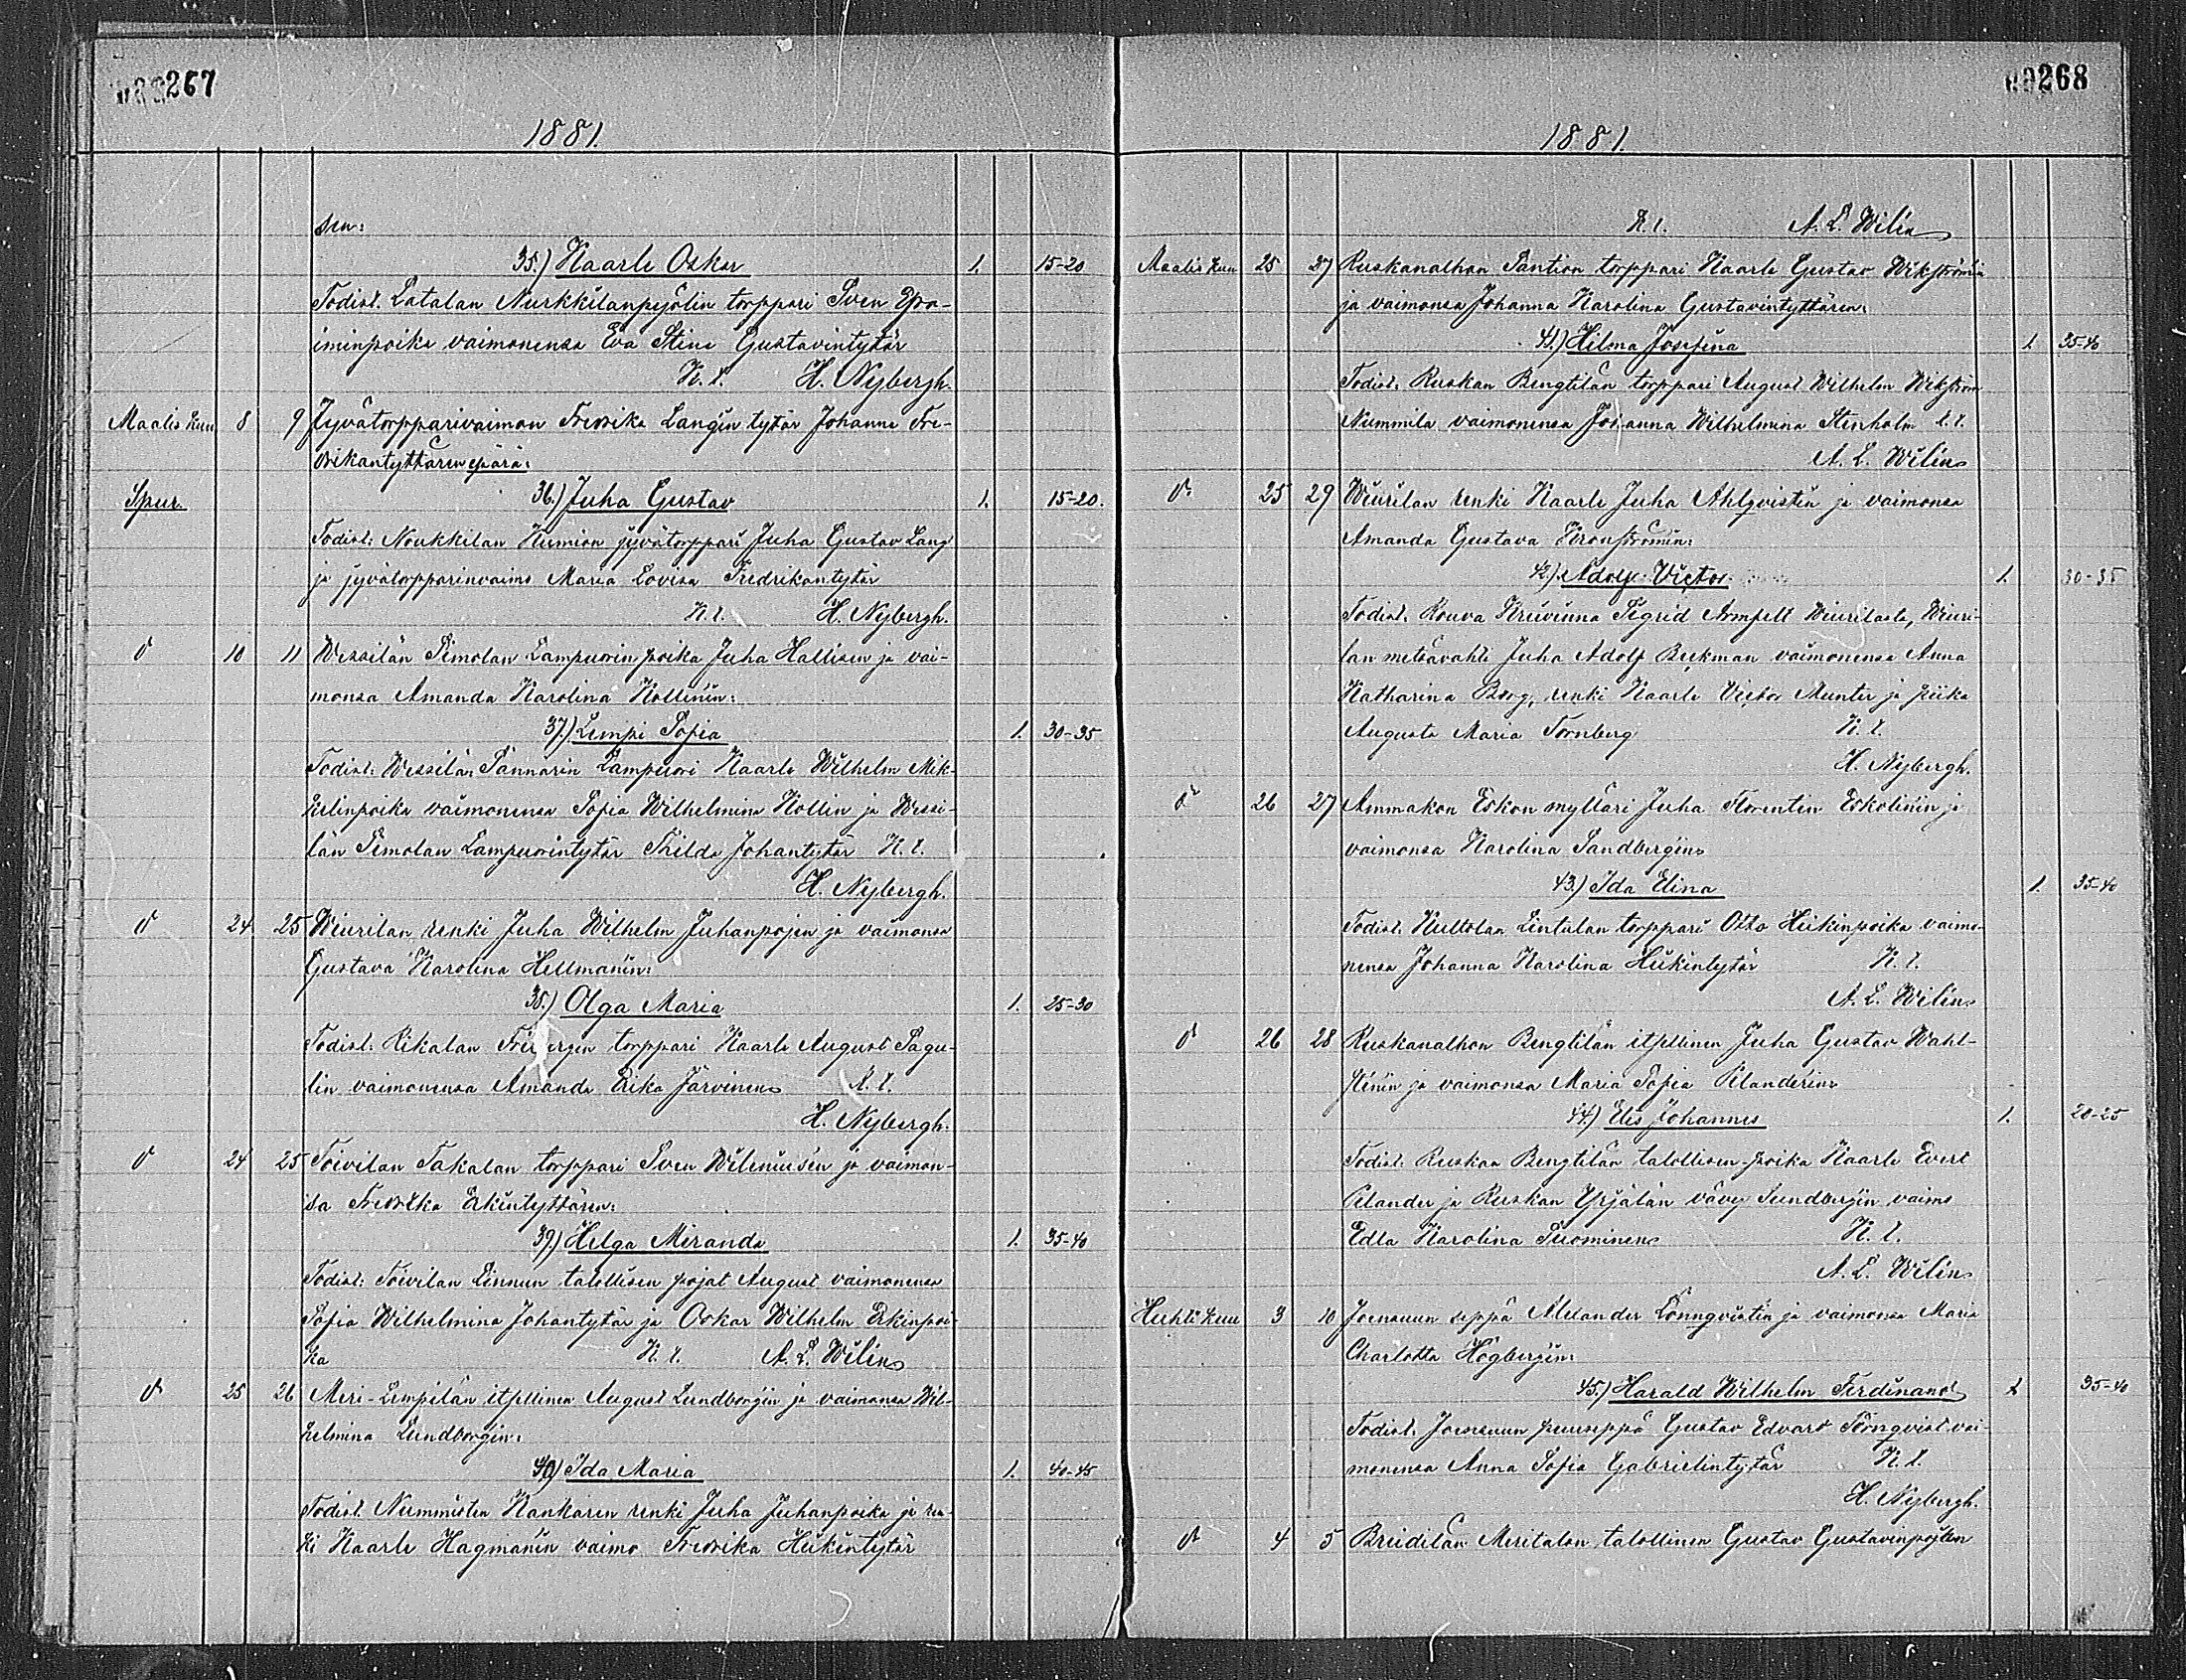 267
1881.
sen:
35.) Kaarle Oskar 1. 15-20
Todist. Latalan Nurkkilanpyölin torppari Sven Efra-
iminpoika vaimonensa Eva Stina Gustavintytär
K. t. H. Nybergh.
Maalis kuu 8 9 Jyvätorpparivaimon Fredrika Langin tytär Johanna Fre-
drikantyttären epärä:
Spur. 36.) Juha Gustav 1. 15-20.
Todist: Noukkilan Humion jyvätorppari Juha Gustav Lang
ja jyvätorpparinvaimo Maria Lovisa Fredrikantytär
K. t. H. Nybergh.
d 10 11 Wessilän Simolan Lampuorin poika Juha Hallisen ja vai-
monsa Amanda Karolina Kollinin:
37.) Lempi Sofia 1. 30-35
Todist: Wessilän Pännärin Lampuori Kaarle Wilhelm Mik-
kelinpoika vaimonensa Sofia Wilhelmina Kollin ja Wessi-
län Simolan Lampuorintytär Thilda Johantytär K. t.
H. Nybergh.
d 24 25 Wiurilan renki Juha Wilhelm Juhanpojan ja vaimonsa
Gustava Karolina Hellmanin:
38.) Olga Maria 1. 25-30
Todist. Rikalan torppari Kaarle August Sagu-
lin vaimonensa Amanda Erika Järvinen K. t.
H. Nybergh.
d 24 25 Toivilan Takalan torppari Sven Wileniusén ja vaimon-
sa Fredrika Erkintyttären:
39.) Helga Miranda 1. 35-40
Todist: Toivilan Linnun talollisen pojat August vaimonensa
Sofia Wilhelmina Johantytär ja Oskar Wilhelm Erkinpoi-
ka K. t. A. L. Wilén
d 25 26 Meri-Lempilän itsellinen August Lundborgin ja vaimonsa Wil-
helmina Lundborgin:
40) Ida Maria 1. 40-45
Todist. Nummisten Kankaren renki Juha Juhanpoika ja ren-
ki Kaarle Hagmanin vaimo Fredrika Heikintytär
268
1881.
K. t. A. L. Wilén
Maalis kuu 25 27 Ruskanalhon Pantion torppari Kaarle Gustav Wikströmin
ja vaimonsa Johanna Karolina Gustavintyttären:
41.) Hilma Josefina 1. 35-40
Todist: Ruskan Bengtilän torppari August Wilhelm Wikström
Nummila vaimonensa Johanna Wilhelmina Stenholm K. t.
A. L. Wilén
d 25 29 Wiurilan renki Kaarle Juha Ahlqvistin ja vaimonsa
Amanda Gustava Kronströmin:
42.) Adolf Victor 1. 30-35
Todist. Rouva Kreivinna Sigrid Armfelt Wiurilasta, Wiuri-
lan metsävahti Juha Adolf Beckman vaimonensa Anna
Katharina Borg, renki Kaarle Victor Munter ja piika
Augusta Maria Törnberg K. t.
H. Nybergh.
d 26 27 Ammakon Eskon mylläri Juha Florentin Eskolinin ja
vaimonsa Karolina Sandbergin
43.) Ida Elina 1. 35-40
Todist: Kultolan Lintulan torppari Otto Heikinpoika vaimo-
nensa Johanna Karolina Heikintytär K. t.
A. L. Wilén
d 26 28 Ruskanalhon Bengtilän itsellinen Juha Gustav Wahl-
sténin ja vaimonsa Maria Sofia Pelanderin
44.) Elis Johannes 1. 20-25
Todist: Ruskan Bengtilän talollisen poika Kaarle Evert
Pelander ja Ruskan Yrjälän vävy Sundbergin vaimo
Edla Karolina Suominen K. t.
A. L. Wilén
Huhtikuu 3 10 Joensuun seppä Alexander Lönnqvistin ja vaimonsa Maria
Charlotta Högbergin:
45.) Harald Wilhelm Ferdinand 1 35-40
Todist. Joensuun puuseppä Gustav Edvard Törnqvist vai-
monensa Anna Sofia Gabrielintytär K. t.
H. Nybergh.
d 4 5 Breidilän Meritalon talollinen Gustav Gustavinpojan